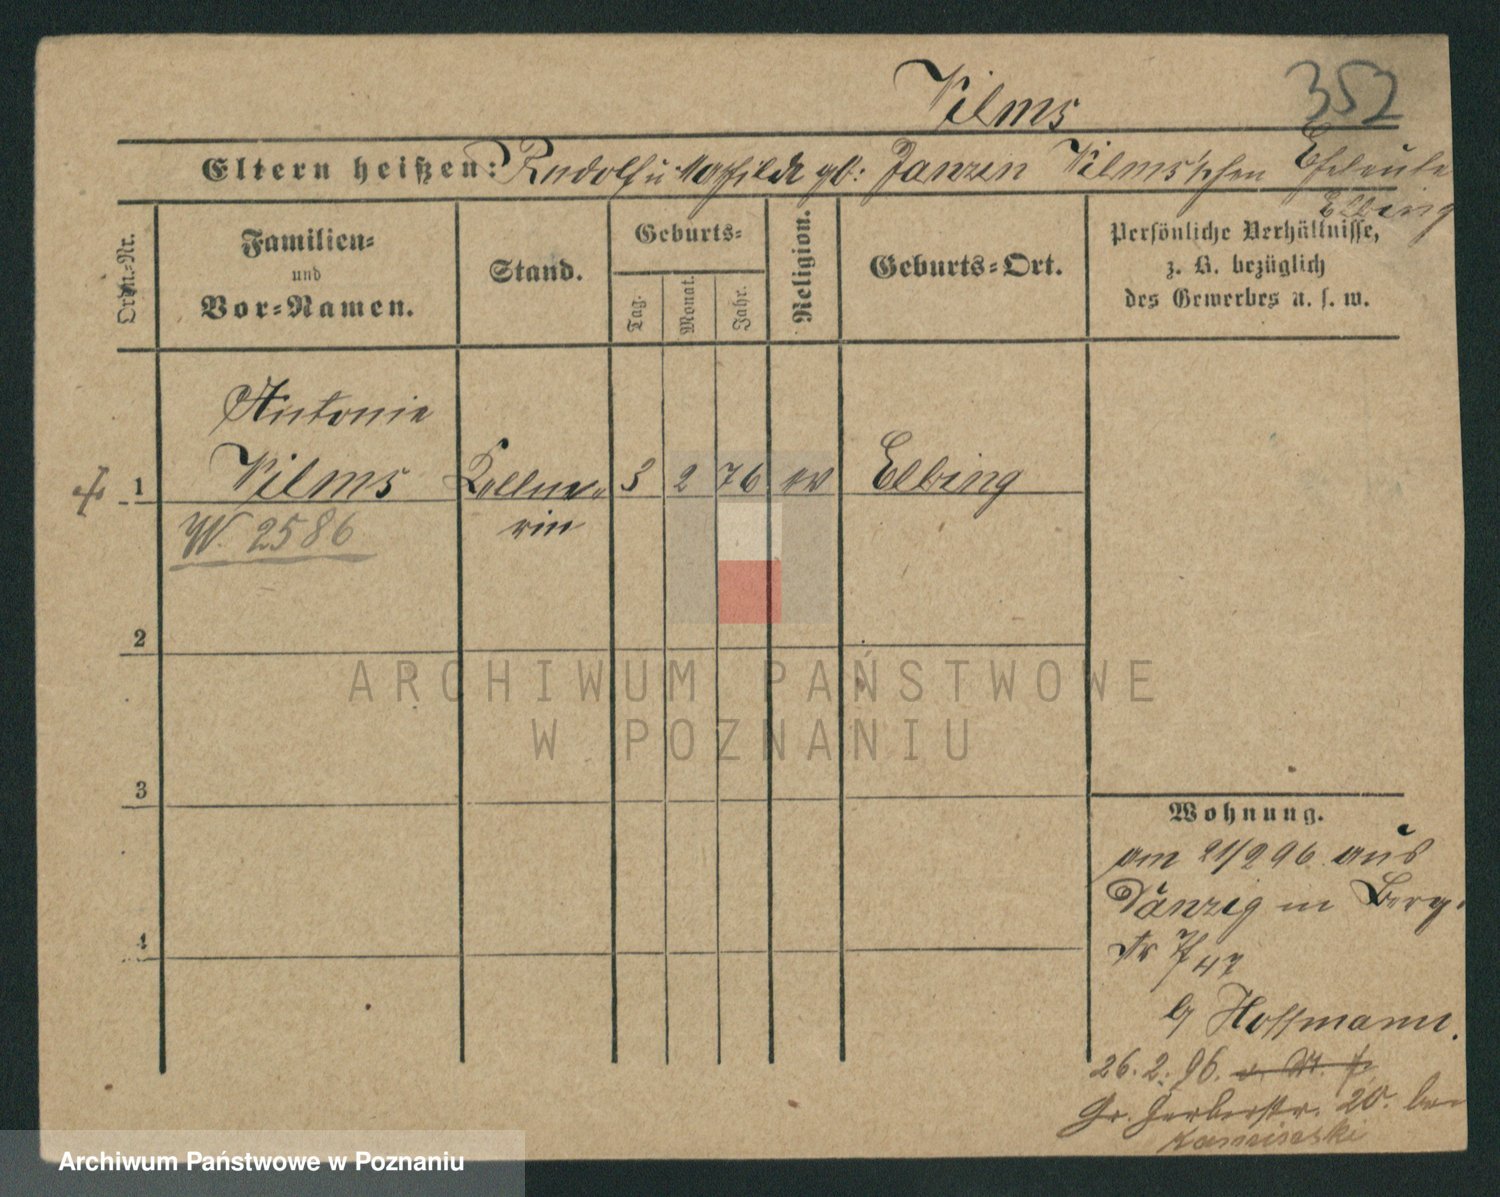 Vilms
352
Eltern heißen: Rudolf u Mathilde gb: Janzen Vilms'schen Eheleute
Elbing
Ordn.-Nr.
Familien-
und
Vor-Namen.
Stand.
Geburts-
Tag.
Monat.
Jahr.
Religion.
Geburts-Ort.
Persönliche Verhältnisse,
z. B. bezüglich
des Gewerbes u. s. w.
Antonie
1 Vilms Kellne- 3 2 76 ev Elbing
rin
W. 2586
2
3
4
Wohnung.
am 21/2 96 aus
Danzig in Berg-
str
47
b/ Hoffmann.
26. 2. 96.
Gr. Gerberstr. 20. bei
Kaminski
ARCHIWUM PAŃSTWOWE
W POZNANIU
Archiwum Państwowe w Poznaniu